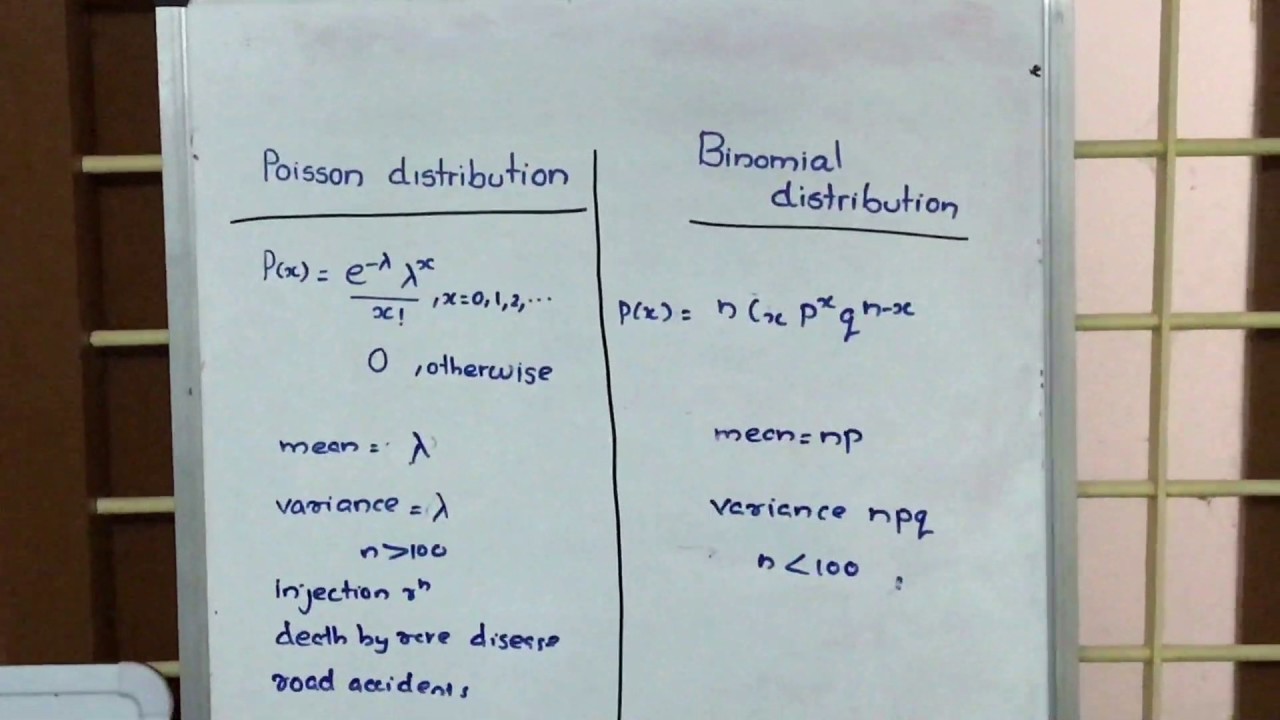 Poisson distribution
P(x) = e^-λ λ^x / x! , x=0,1,2,...
0 , otherwise
mean = λ
variance = λ
n>100
Injection rⁿ
death by rare disease
road accidents
Binomial
distribution
P(x) = n Cx p^x q^n-x
mean=np
variance npq
n<100